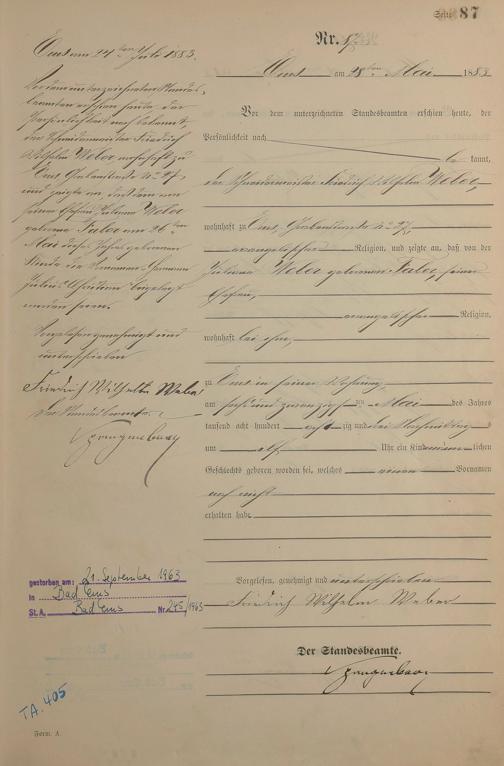 Seite 87
Nr.
Ems am 28ten Mai 1883
Vor dem unterzeichneten Standesbeamten erschien heute, der
Persönlichkeit nach
be kannt,
der Schneidermeister Friedrich Wilhelm Weber,
wohnhaft zu Ems, Grabenstraße No 27,
evangelischer Religion, und zeigte an, daß von der
Juliane Weber geborenen Faber, seiner
Ehefrau,
evangelischer Religion,
wohnhaft bei ihm,
zu Ems in seiner Wohnung,
am sechs und zwanzigsten Mai des Jahres
tausend acht hundert achtzig und drei Nachmittags
um elf Uhr ein Kind männlichen
Geschlechts geboren worden sei, welches einen Vornamen
noch nicht
erhalten habe
Vorgelesen, genehmigt und unterschrieben
Friedrich Wilhelm Weber
Der Standesbeamte.
Ems am 24ten Juli 1883.
Vor dem unterzeichneten Standes-
beamten erschien heute, der
Persönlichkeit nach bekannt,
der Schneidermeister Friedrich
Wilhelm Weber wohnhaft zu
Ems Grabenstraße No 27,
und zeigte an, daß dem von
seiner Ehefrau Juliane Weber
geborene Faber am 26ten
Mai dieses Jahres geborenen
Kinde die Vornamen Hermann
Julius Christian beigelegt
worden seien.
Vorgelesen genehmigt und
unterschrieben
Friedrich Wilhelm Weber
Der Standesbeamte.
gestorben am: 21. September 1963
in Bad Ems
St. A. Bad Ems Nr. 245/1963
TA. 405
Form. A.